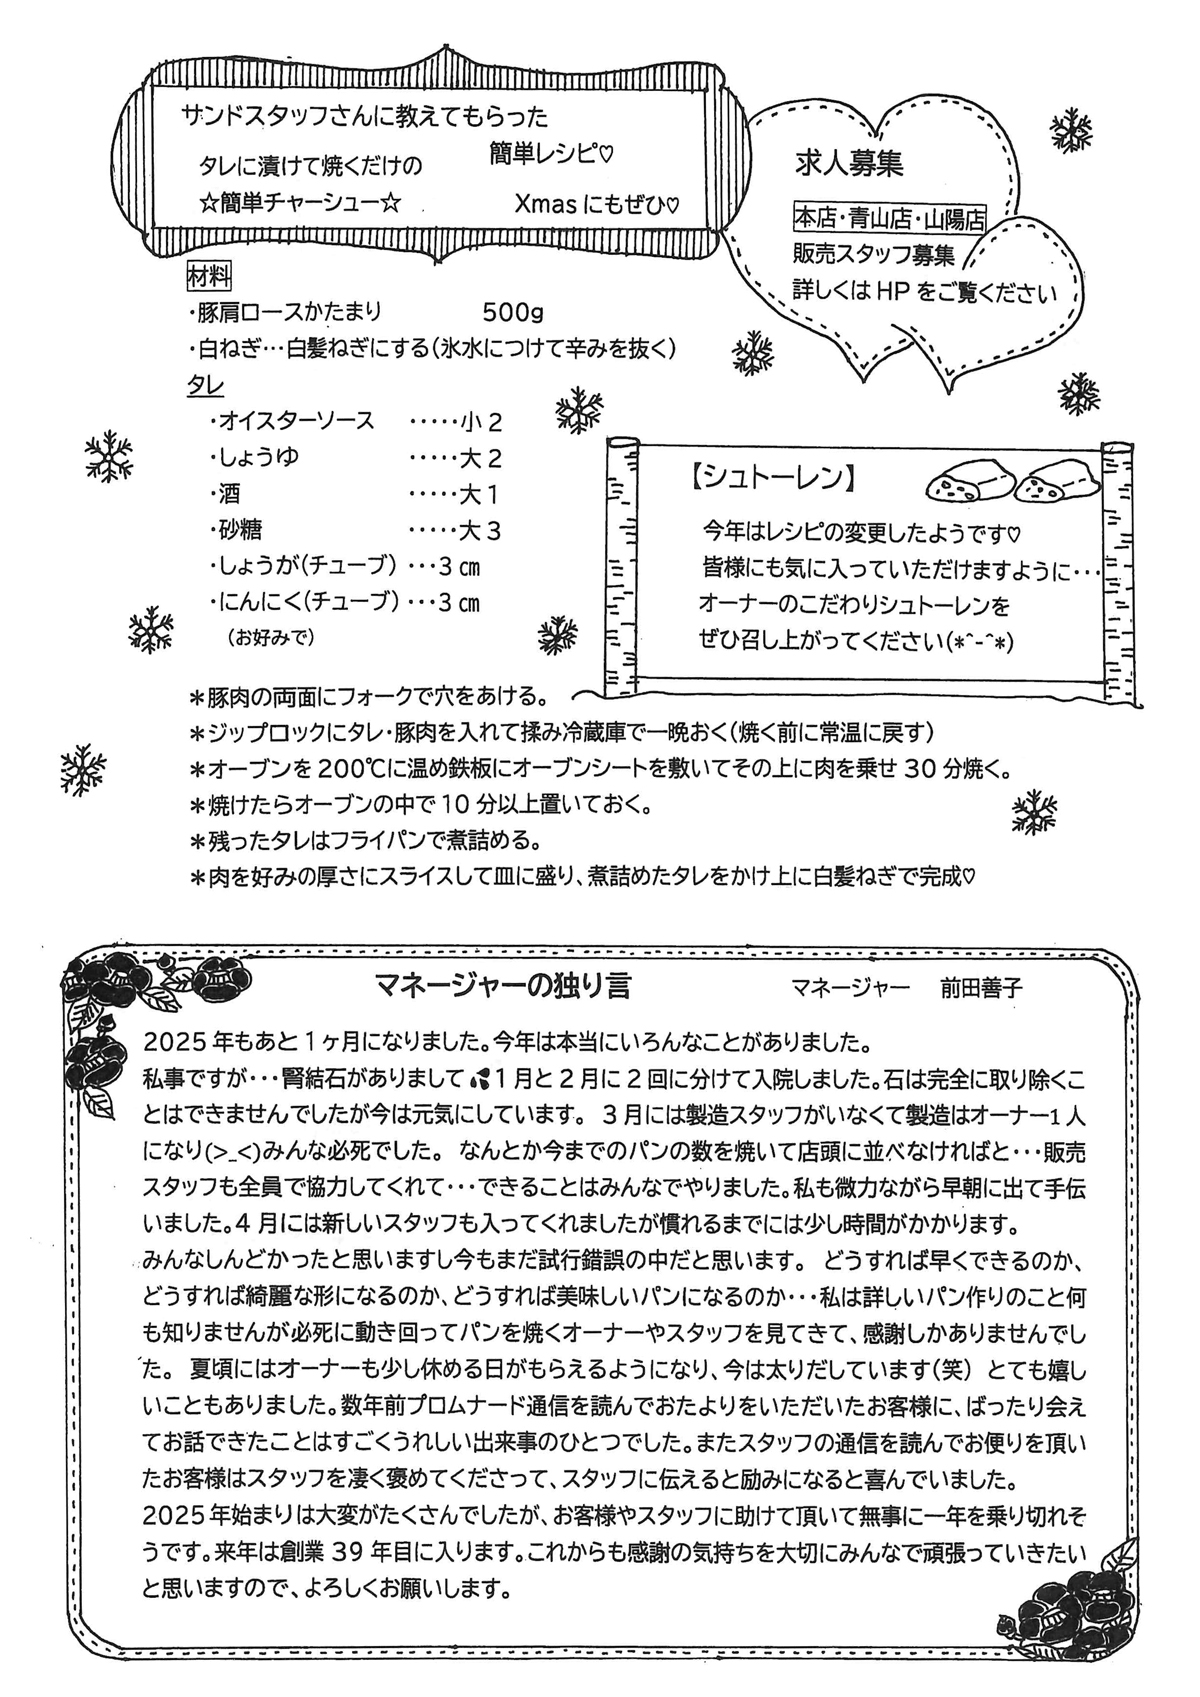 サンドスタッフさんに教えてもらった
簡単レシピ♡
タレに漬けて焼くだけの
☆簡単チャーシュー☆
Xmasにもぜひ♡
求人募集
本店・青山店・山陽店
販売スタッフ募集
詳しくはHPをご覧ください
材料
・豚肩ロースかたまり 500g
・白ねぎ…白髪ねぎにする(氷水につけて辛みを抜く)
タレ
・オイスターソース ・・・・・小2
・しょうゆ ・・・・・大2
・酒 ・・・・・大1
・砂糖 ・・・・・大3
・しょうが(チューブ)・・・3㎝
・にんにく(チューブ)・・・3㎝
(お好みで)
【シュトーレン】
今年はレシピの変更したようです♡
皆様にも気に入っていただけますように・・・
オーナーのこだわりシュトーレンを
ぜひ召し上がってください(*^-^*)
＊豚肉の両面にフォークで穴をあける。
＊ジップロックにタレ・豚肉を入れて揉み冷蔵庫で一晩おく(焼く前に常温に戻す)
＊オーブンを200℃に温め鉄板にオーブンシートを敷いてその上に肉を乗せ30分焼く。
＊焼けたらオーブンの中で10分以上置いておく。
＊残ったタレはフライパンで煮詰める。
＊肉を好みの厚さにスライスして皿に盛り、煮詰めたタレをかけ上に白髪ねぎで完成♡
マネージャーの独り言
マネージャー 前田善子
2025年もあと1ヶ月になりました。今年は本当にいろんなことがありました。
私事ですが・・・腎結石がありまして💦1月と2月に2回に分けて入院しました。石は完全に取り除くこ
とはできませんでしたが今は元気にしています。 3月には製造スタッフがいなくて製造はオーナー1人
になり(>_<)みんな必死でした。 なんとか今までのパンの数を焼いて店頭に並べなければと・・・販売
スタッフも全員で協力してくれて・・・できることはみんなでやりました。私も微力ながら早朝に出て手伝
いました。4月には新しいスタッフも入ってくれましたが慣れるまでには少し時間がかかります。
みんなしんどかったと思いますし今もまだ試行錯誤の中だと思います。 どうすれば早くできるのか、
どうすれば綺麗な形になるのか、どうすれば美味しいパンになるのか・・・私は詳しいパン作りのこと何
も知りませんが必死に動き回ってパンを焼くオーナーやスタッフを見てきて、感謝しかありませんでし
た。 夏頃にはオーナーも少し休める日がもらえるようになり、今は太りだしています(笑) とても嬉し
いこともありました。数年前プロムナード通信を読んでおたよりをいただいたお客様に、ばったり会え
てお話できたことはすごくうれしい出来事のひとつでした。またスタッフの通信を読んでお便りを頂い
たお客様はスタッフを凄く褒めてくださって、スタッフに伝えると励みになると喜んでいました。
2025年始まりは大変がたくさんでしたが、お客様やスタッフに助けて頂いて無事に一年を乗り切れそ
うです。来年は創業39年目に入ります。これからも感謝の気持ちを大切にみんなで頑張っていきたい
と思いますので、よろしくお願いします。